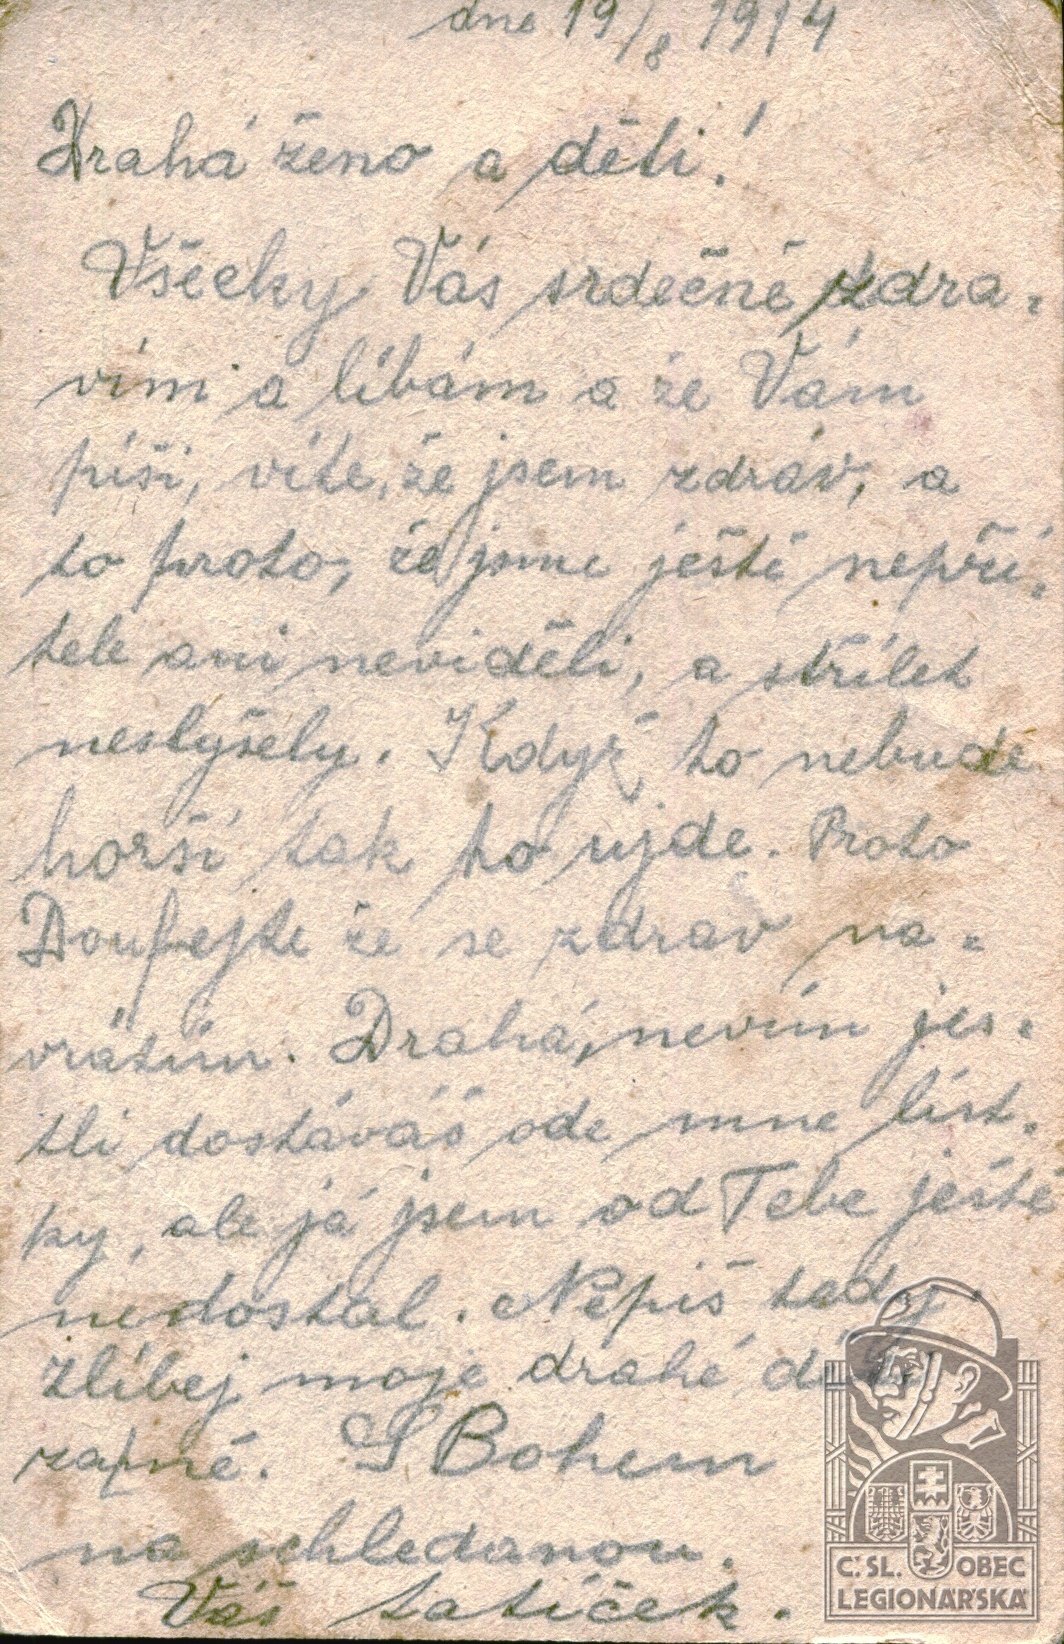 dne 19/8 1914
Drahá ženo a děti!
Všecky Vás srdečně zdra-
vím a líbám a že Vám
píši, víte, že jsem zdráv, a
to proto, že jsme ještě nepří-
tele ani neviděli, a střílet
neslyšely. Když to nebude
horší tak to ujde. Proto
Doufejte že se zdráv na-
vrátím. Drahá, nevím jes-
tli dostáváš ode mne líst-
ky, ale já jsem od Tebe ještě
nedostal. Nepiš tady
zlíbej moje drahé
za mě. S Bohem
na schledanou.
Váš tatíček.
Č. SL. OBEC
LEGIONÁŘSKÁ